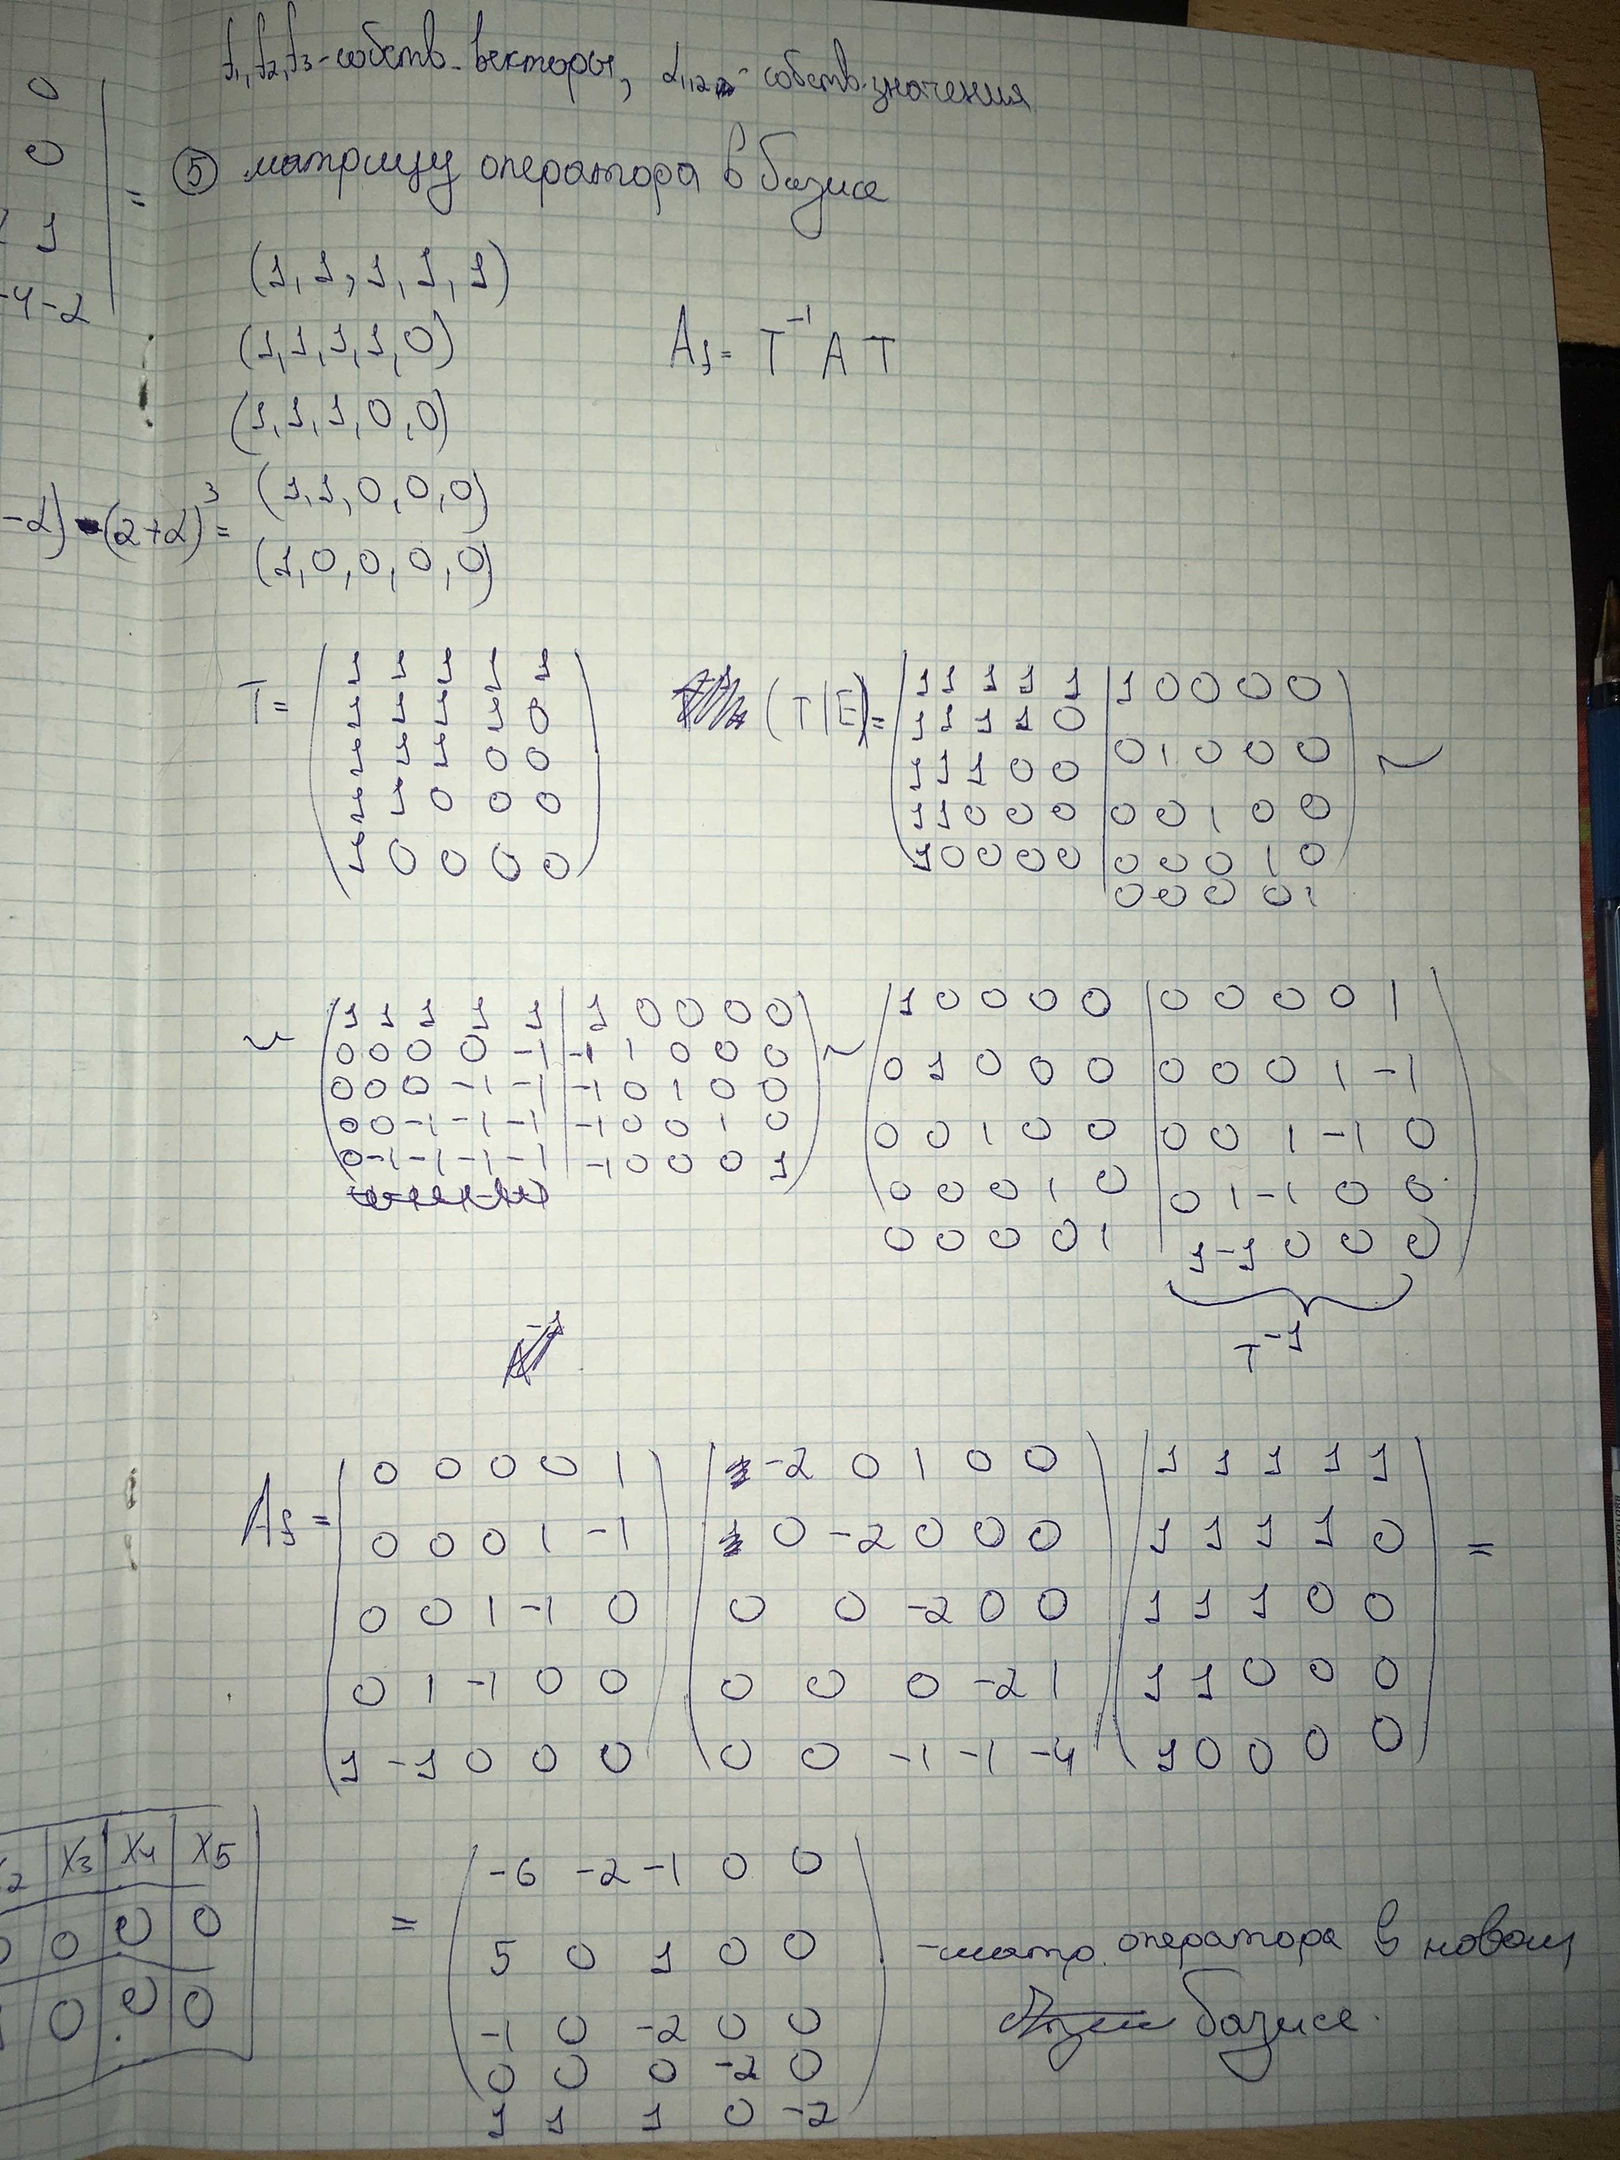 0
0
1
-4 -2
=
-α) (2+α)³ =
f₁, f₂, f₃ - собств. векторы, α₁,₂ - собств. значения
⑤ матрицу оператора в базисе
(1, 1, 1, 1, 1)
(1, 1, 1, 1, 0)
A₁ = T⁻¹ A T
(1, 1, 1, 0, 0)
(1, 1, 0, 0, 0)
(1, 0, 0, 0, 0)
T =
1 1 1 1 1
1 1 1 1 0
1 1 1 0 0
1 1 0 0 0
1 0 0 0 0
(T | E) =
1 1 1 1 1 | 1 0 0 0 0
1 1 1 1 0 | 0 1 0 0 0
1 1 1 0 0 | 0 0 1 0 0
1 1 0 0 0 | 0 0 0 1 0
1 0 0 0 0 | 0 0 0 0 1
~
~
1 1 1 1 1 | 1 0 0 0 0
0 0 0 0 -1 | -1 1 0 0 0
0 0 0 -1 -1 | -1 0 1 0 0
0 0 -1 -1 -1 | -1 0 0 1 0
0 -1 -1 -1 -1 | -1 0 0 0 1
~
1 0 0 0 0 | 0 0 0 0 1
0 1 0 0 0 | 0 0 0 1 -1
0 0 1 0 0 | 0 0 1 -1 0
0 0 0 1 0 | 0 1 -1 0 0
0 0 0 0 1 | 1 -1 0 0 0
T⁻¹
A₁ =
0 0 0 0 1
0 0 0 1 -1
0 0 1 -1 0
0 1 -1 0 0
1 -1 0 0 0
-2 0 1 0 0
0 -2 0 0 0
0 0 -2 0 0
0 0 0 -2 1
0 0 -1 -1 -4
1 1 1 1 1
1 1 1 1 0
1 1 1 0 0
1 1 0 0 0
1 0 0 0 0
=
=
-6 -2 -1 0 0
5 0 1 0 0
-1 0 -2 0 0
0 0 0 -2 0
1 1 1 0 -2
- матр. оператора в новом
базисе.
x₃ x₄ x₅
0 0 0
0 0 0